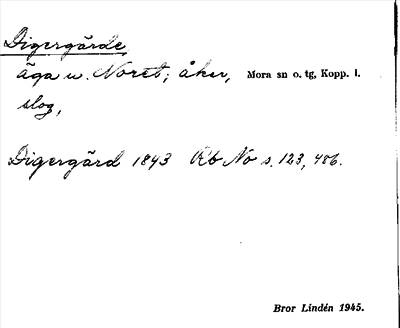 Digergärde,
äga u. Noret; åker, Mora sn o. tg, Kopp. l.
slog,
Digergärd 1843 Rb No s. 123, 486.
Bror Lindén 1945.